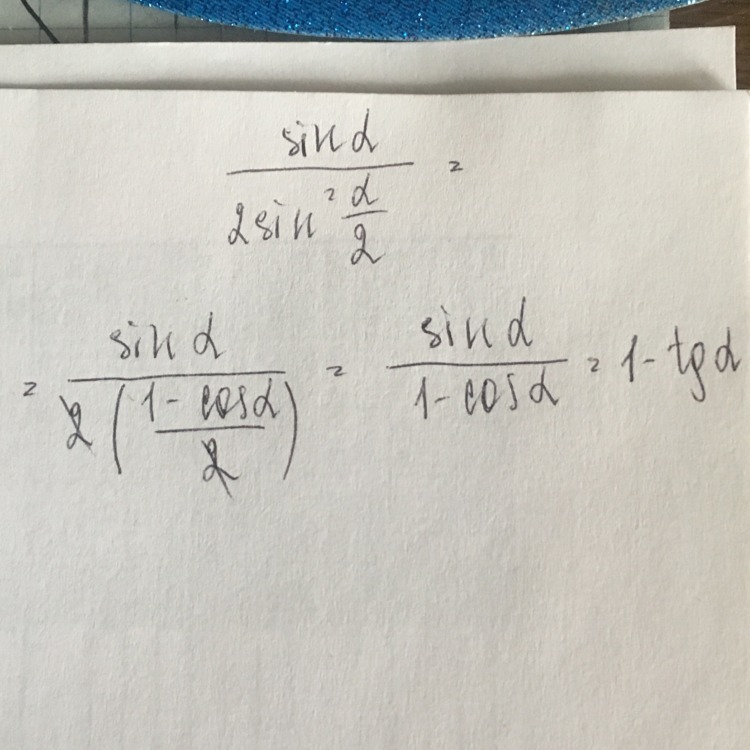 sin α / 2 sin² α/2 =
= sin α / 2 (1 - cos α / 2) = sin α / 1 - cos α = 1 - tg α